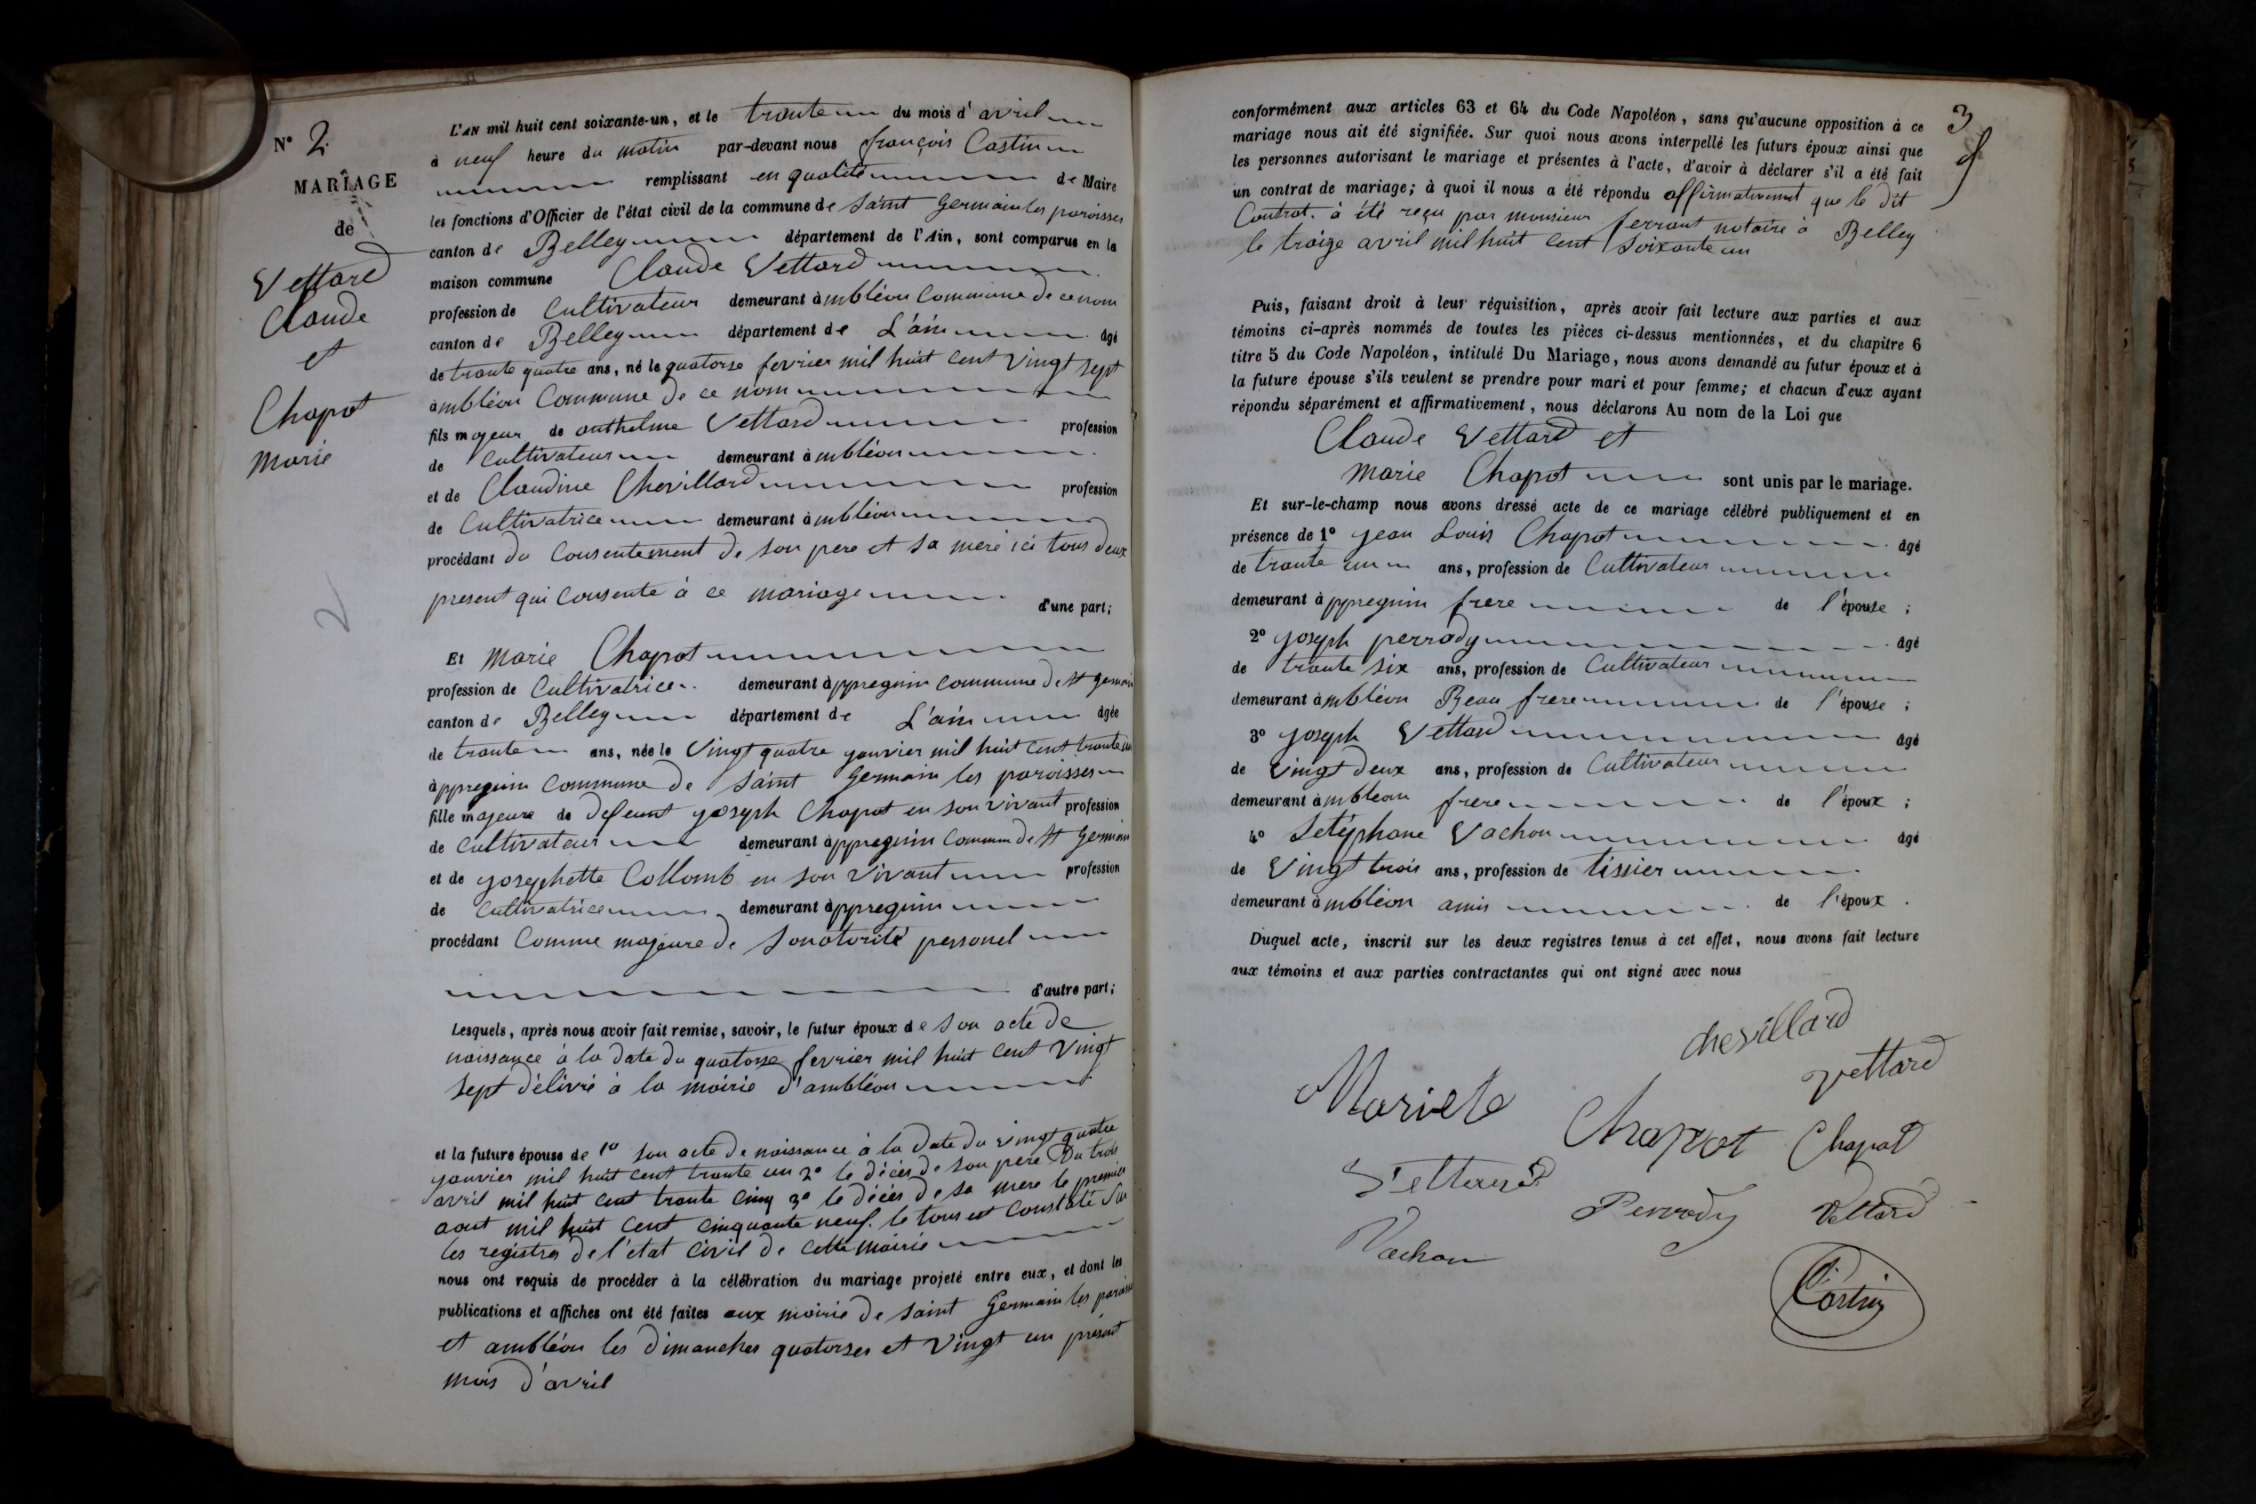 N° 2
MARIAGE
de
Vettard
Claude
et
Chapot
Marie
2
L'AN mil huit cent soixante-un, et le trante du mois d'avril
à neuf heure du matin par-devant nous françois Castin
remplissant en qualité de Maire
les fonctions d'Officier de l'état civil de la commune de Saint Germain les paroisses
canton de Belley département de l'Ain, sont comparus en la
maison commune Claude Vettard
profession de Cultivateur demeurant àmbléon Commune de ce nom
canton de Belley département de L'ain âgé
de trante quatre ans, né le quatorse fevrier mil huit cent vingt sept
àmbléon Commune de ce nom
fils majeur de anthelme Vettard profession
de Cultivateur demeurant àmbléon
et de Claudine Chevillard profession
de Cultivatrice demeurant àmbléon
procédant du Consentement de son pere et sa mere ici tous deux
present qui Consente à ce mariage d'une part;
Et Marie Chapot
profession de Cultivatrice demeurant àppregnin commune de St germain
canton de Belley département de L'ain âgée
de trante ans, née le Vingt quatre janvier mil huit cent trante un
àppregnin Commune de Saint Germain les paroisses
fille majeure de defeunt joseph Chapot en son vivant profession
de Cultivateur demeurant àppregnin Commun de St Germain
et de josephette Collomb en son vivant profession
de Cultivatrice demeurant àppregnin
procédant Comme majeure de sonotorité personel
d'autre part;
Lesquels, après nous avoir fait remise, savoir, le futur époux de son acte de
naissance à la date du quatorse fevrier mil huit cent vingt
sept délivré à la mairie d'ambléon
et la future épouse de 1° son acte de naissance à la date du vingt quatre
janvier mil huit cent trante un 2° le décès de son pere du trois
avril mil huit cent trante cinq 3° le décès de sa mere le premier
aout mil huit cent cinquante neuf. le tous est constaté sur
les registres de l'etat civil de cette mairie
nous ont requis de procéder à la célébration du mariage projeté entre eux, et dont les
publications et affiches ont été faites aux mairie de saint Germain les paroisses
et ambléon les dimanches quatorses et vingt un présent
mois d'avril
3
conformément aux articles 63 et 64 du Code Napoléon, sans qu'aucune opposition à ce
mariage nous ait été signifiée. Sur quoi nous avons interpellé les futurs époux ainsi que
les personnes autorisant le mariage et présentes à l'acte, d'avoir à déclarer s'il a été fait
un contrat de mariage; à quoi il nous a été répondu affirmativement que le dit
Contrat. à été reçu par monsieur ferrant notaire à Belley
le traize avril mil huit cent soixante un
Puis, faisant droit à leur réquisition, après avoir fait lecture aux parties et aux
témoins ci-après nommés de toutes les pièces ci-dessus mentionnées, et du chapitre 6
titre 5 du Code Napoléon, intitulé Du Mariage, nous avons demandé au futur époux et à
la future épouse s'ils veulent se prendre pour mari et pour femme; et chacun d'eux ayant
répondu séparément et affirmativement, nous déclarons Au nom de la Loi que
Claude Vettard et
Marie Chapot sont unis par le mariage.
Et sur-le-champ nous avons dressé acte de ce mariage célébré publiquement et en
présence de 1° jean Louis Chapot âgé
de trante un ans, profession de Cultivateur
demeurant àppregnin frere de l'épouse ;
2° joseph perrody âgé
de trante six ans, profession de Cultivateur
demeurant àmbléon Beau frere de l'épouse ;
3° joseph Vettard âgé
de Vingt deux ans, profession de Cultivateur
demeurant àmbleon frere de l'époux ;
4° Setéphane Vachon âgé
de Vingt trois ans, profession de tissier
demeurant àmbléon amis de l'époux .
Duquel acte, inscrit sur les deux registres tenus à cet effet, nous avons fait lecture
aux témoins et aux parties contractantes qui ont signé avec nous
chevillard
vettard
Chapot Chapot
Vettard
Perrody Vettard
Vachon
Castin